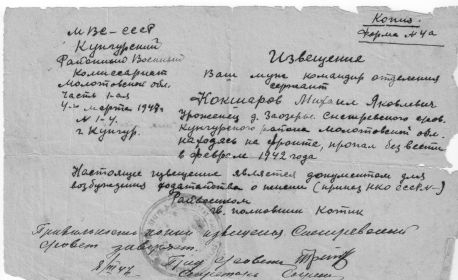 Копия.
Форма №4а
МВС-СССР
Кунгурский
Районный Военный
Комиссариат
Молотовской обл.
Часть 1-ая
4-го марта 1947г
№ 1-4.
г. Кунгур.
Извещение
Ваш муж командир отделения
сержант
Кокшаров Михаил Яковлевич
Уроженец д. Заозерье
Кунгурского района Молотовской обл.
находясь на фронте, пропал без вести
в феврале 1942 года
Настоящее извещение является документом для
возбуждения ходатайства о пенсии (приказ НКО СССР №-)
Райвоенком
гв. полковник Котик
Правильность копии извещения
совет заверяет.
Пред. с/совета
Секретарь